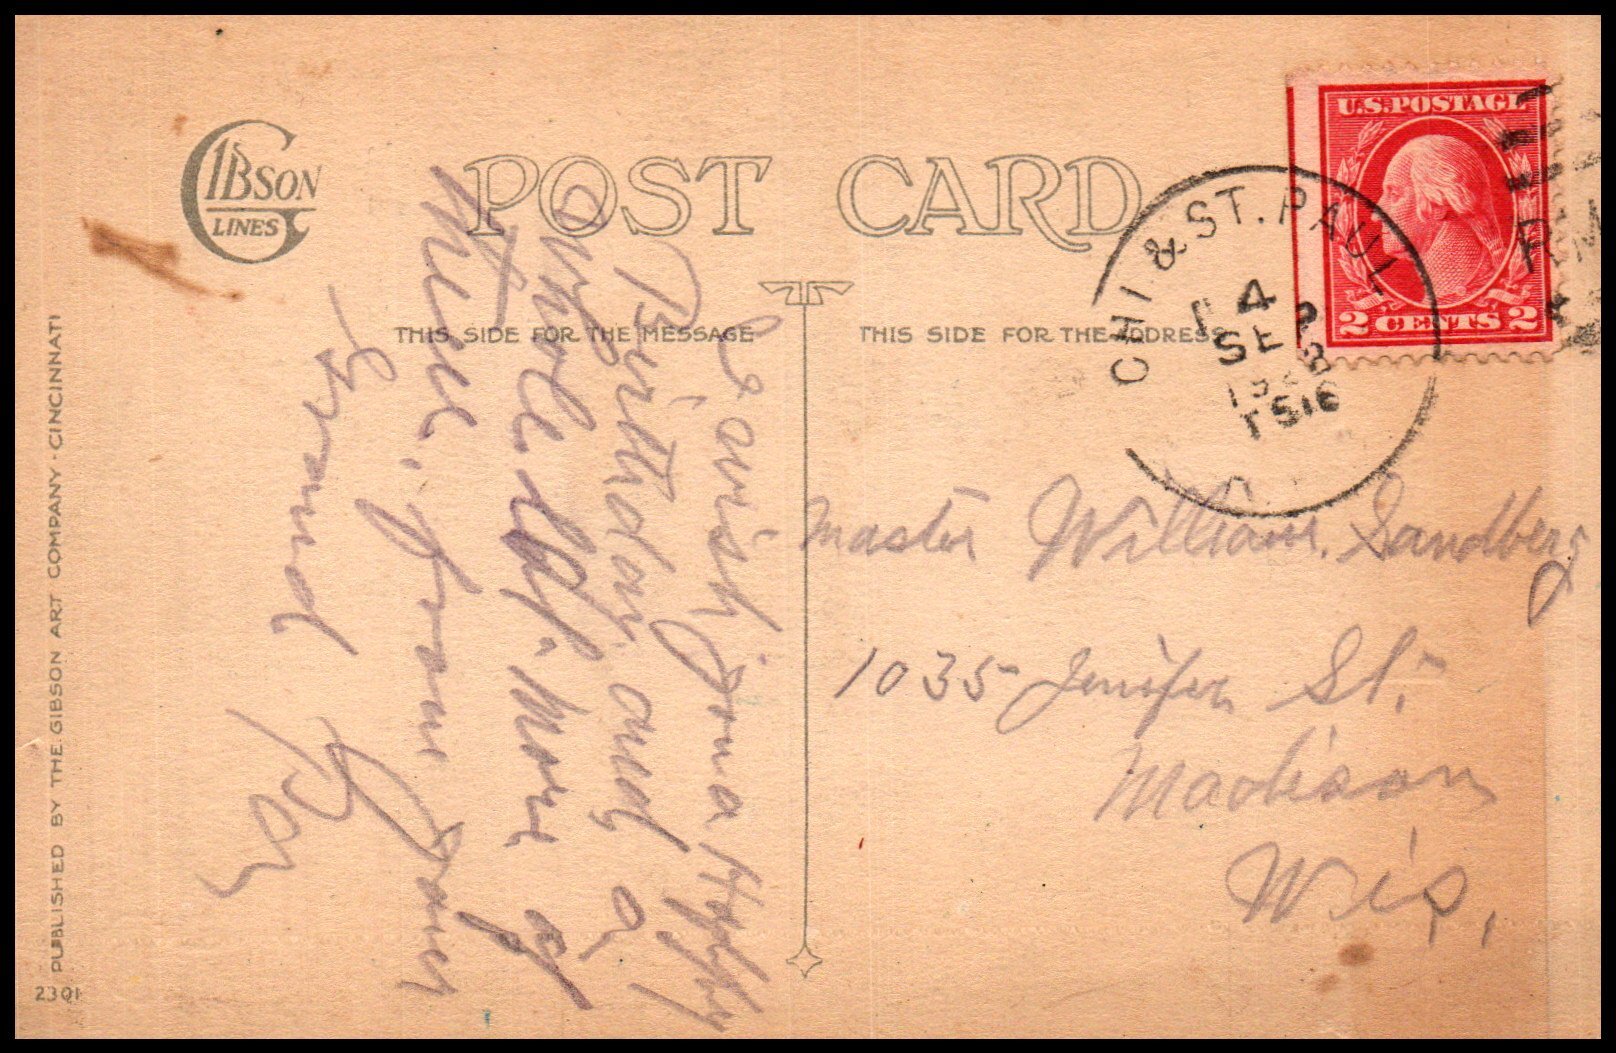 GIBSON
LINES
POST CARD
U.S. POSTAGE
2 CENTS 2
CHI & ST. PAUL
4
SEP
RM
THIS SIDE FOR THE MESSAGE
THIS SIDE FOR THE ADDRESS
I wish you a Happy
Birthday, and a
whole lot. More of
Them. From your
Grand Pa
Master William Sandberg
1035 Jenifer St.
Madison
Wis,
PUBLISHED BY THE GIBSON ART COMPANY · CINCINNATI
2301